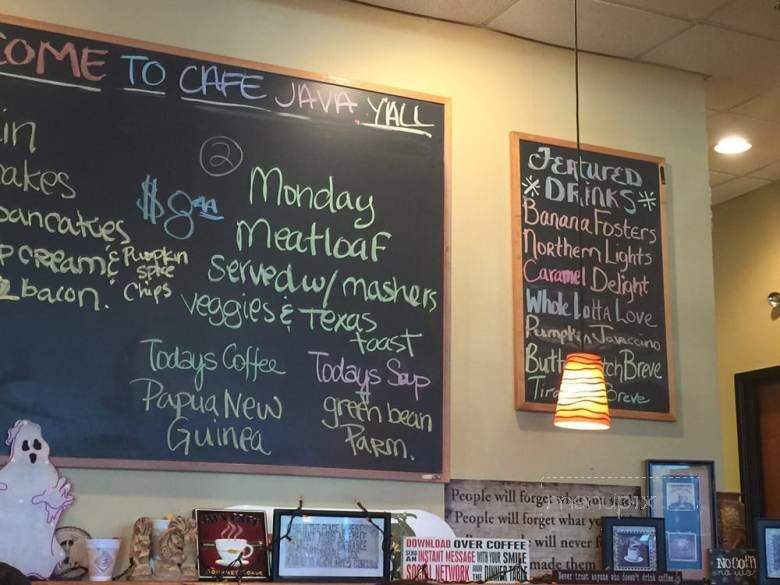 COME TO CAFE JAVA Y'ALL
in
akes
pancakes
cream & Pumpkin
spice
bacon. chips
2
$8
Monday
Meatloaf
served w/ mashers
veggies & Texas
toast
Todays Coffee
Papua New
Guinea
Todays Soup
green bean
Parm.
Featured
Drinks
Banana Fosters
Northern Lights
Caramel Delight
Whole Lotta Love
Pumpkin Javaccino
Butt tch Breve
Tira Breve
People will forget what you
People will forget what yo
will never f
made them
menupix
DOWNLOAD OVER COFFEE
SEND INSTANT MESSAGE WITH YOUR SMILE
SOCIAL NETWORK
Never trust anyone who doesn't drink coffee
NO COFFEE